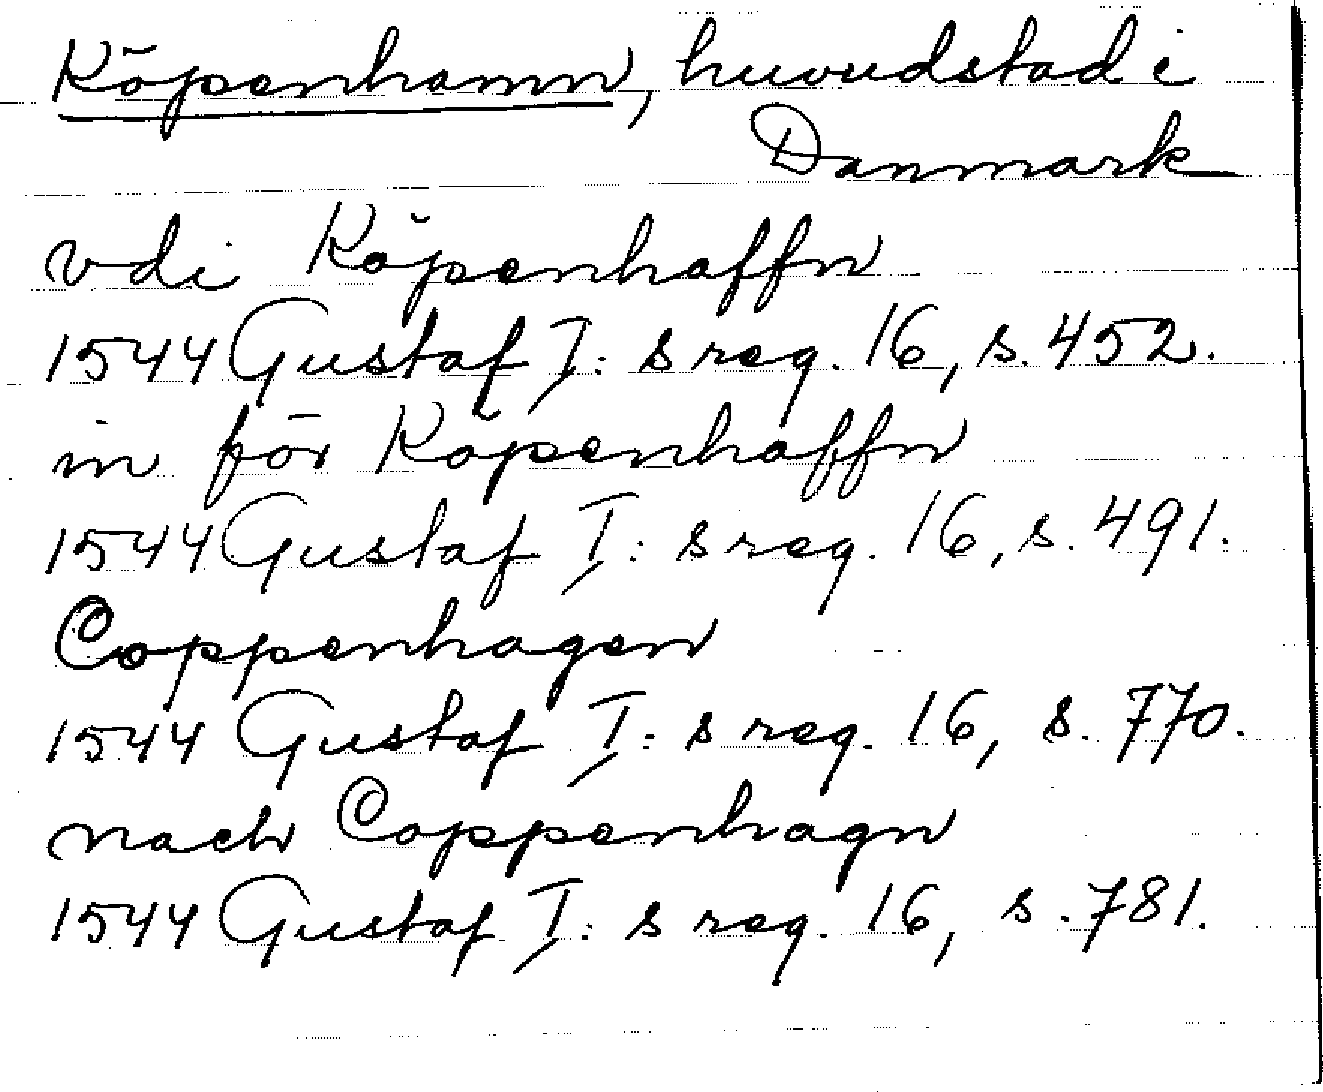 Köpenhamn, huvudstad i
Danmark
vdi Köpenhaffn
1544 Gustaf I:s reg. 16, s. 452.
in för Köpenhaffn
1544 Gustaf I:s reg. 16, s. 491.
Coppenhagen
1544 Gustaf I:s reg. 16, s. 770.
nach Coppenhagn
1544 Gustaf I:s reg. 16, s. 781.